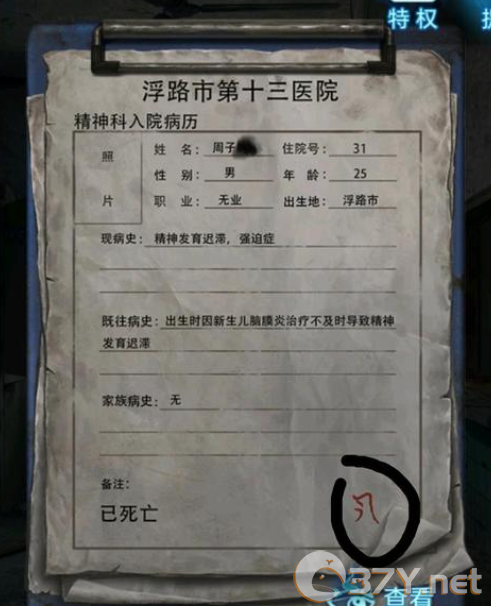 特权
浮路市第十三医院
精神科入院病历
照片
姓 名: 周子 住院号: 31
性 别: 男 年 龄: 25
职 业: 无业 出生地: 浮路市
现病史: 精神发育迟滞, 强迫症
既往病史: 出生时因新生儿脑膜炎治疗不及时导致精神
发育迟滞
家族病史: 无
备注:
已死亡
查看
37Y.net